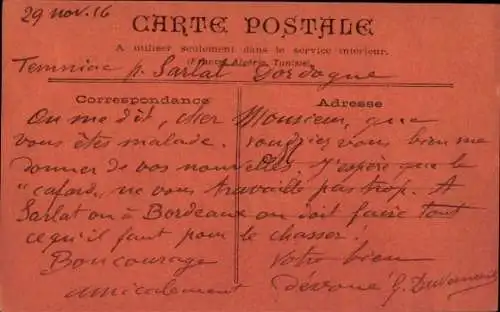 29 nov. 16
CARTE POSTALE
A utiliser seulement dans le service intérieur.
(France, Algérie, Tunisie)
Temniac p. Sarlat Dordogne
Correspondance Adresse
On me dit, cher Monsieur, que
vous êtes malade. voudriez vous bien me
donner de vos nouvelles. J'espère que le
"cafard" ne vous travaille pas trop. A
Sarlat ou à Bordeaux on doit faire tout
ce qu'il faut pour le chasser!
Bon courage Votre bien
amicalement dévoué G.